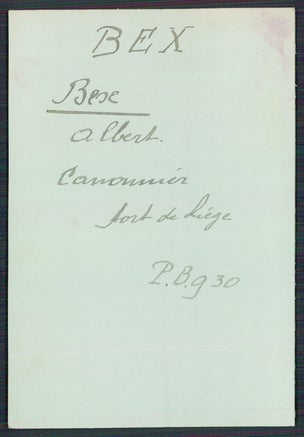 BEX
Bex
Albert.
Canonnier
fort de Liége
P.B.g 30